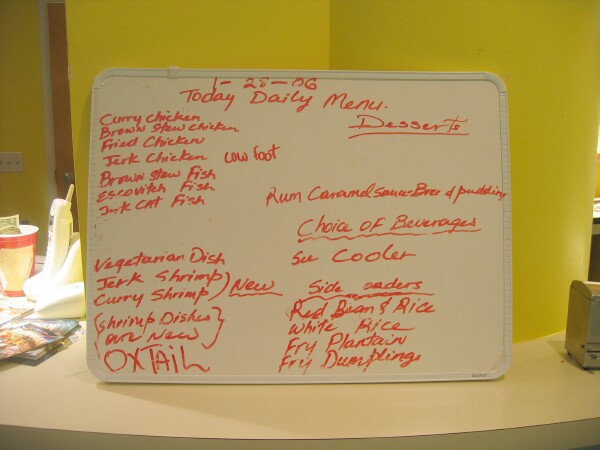 1-28-06
Today Daily Menu.
Curry chicken
Brown Stew chicken
Fried Chicken
Jerk Chicken Cow foot
Brown Stew Fish
Escovitch Fish
Jerk Cat Fish
Vegetarian Dish
Jerk Shrimp
Curry Shrimp) New
{Shrimp Dishes
are New}
OXTAIL
Desserts
Rum Caramel Sauce Bread pudding
Choice of Beverages
See Cooler
Side orders
Red Bean & Rice
White Rice
Fry Plantain
Fry Dumpling